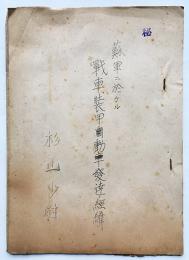 蘇軍ニ於ケル
戰車、裝甲自動車發達經緯
杉山少尉